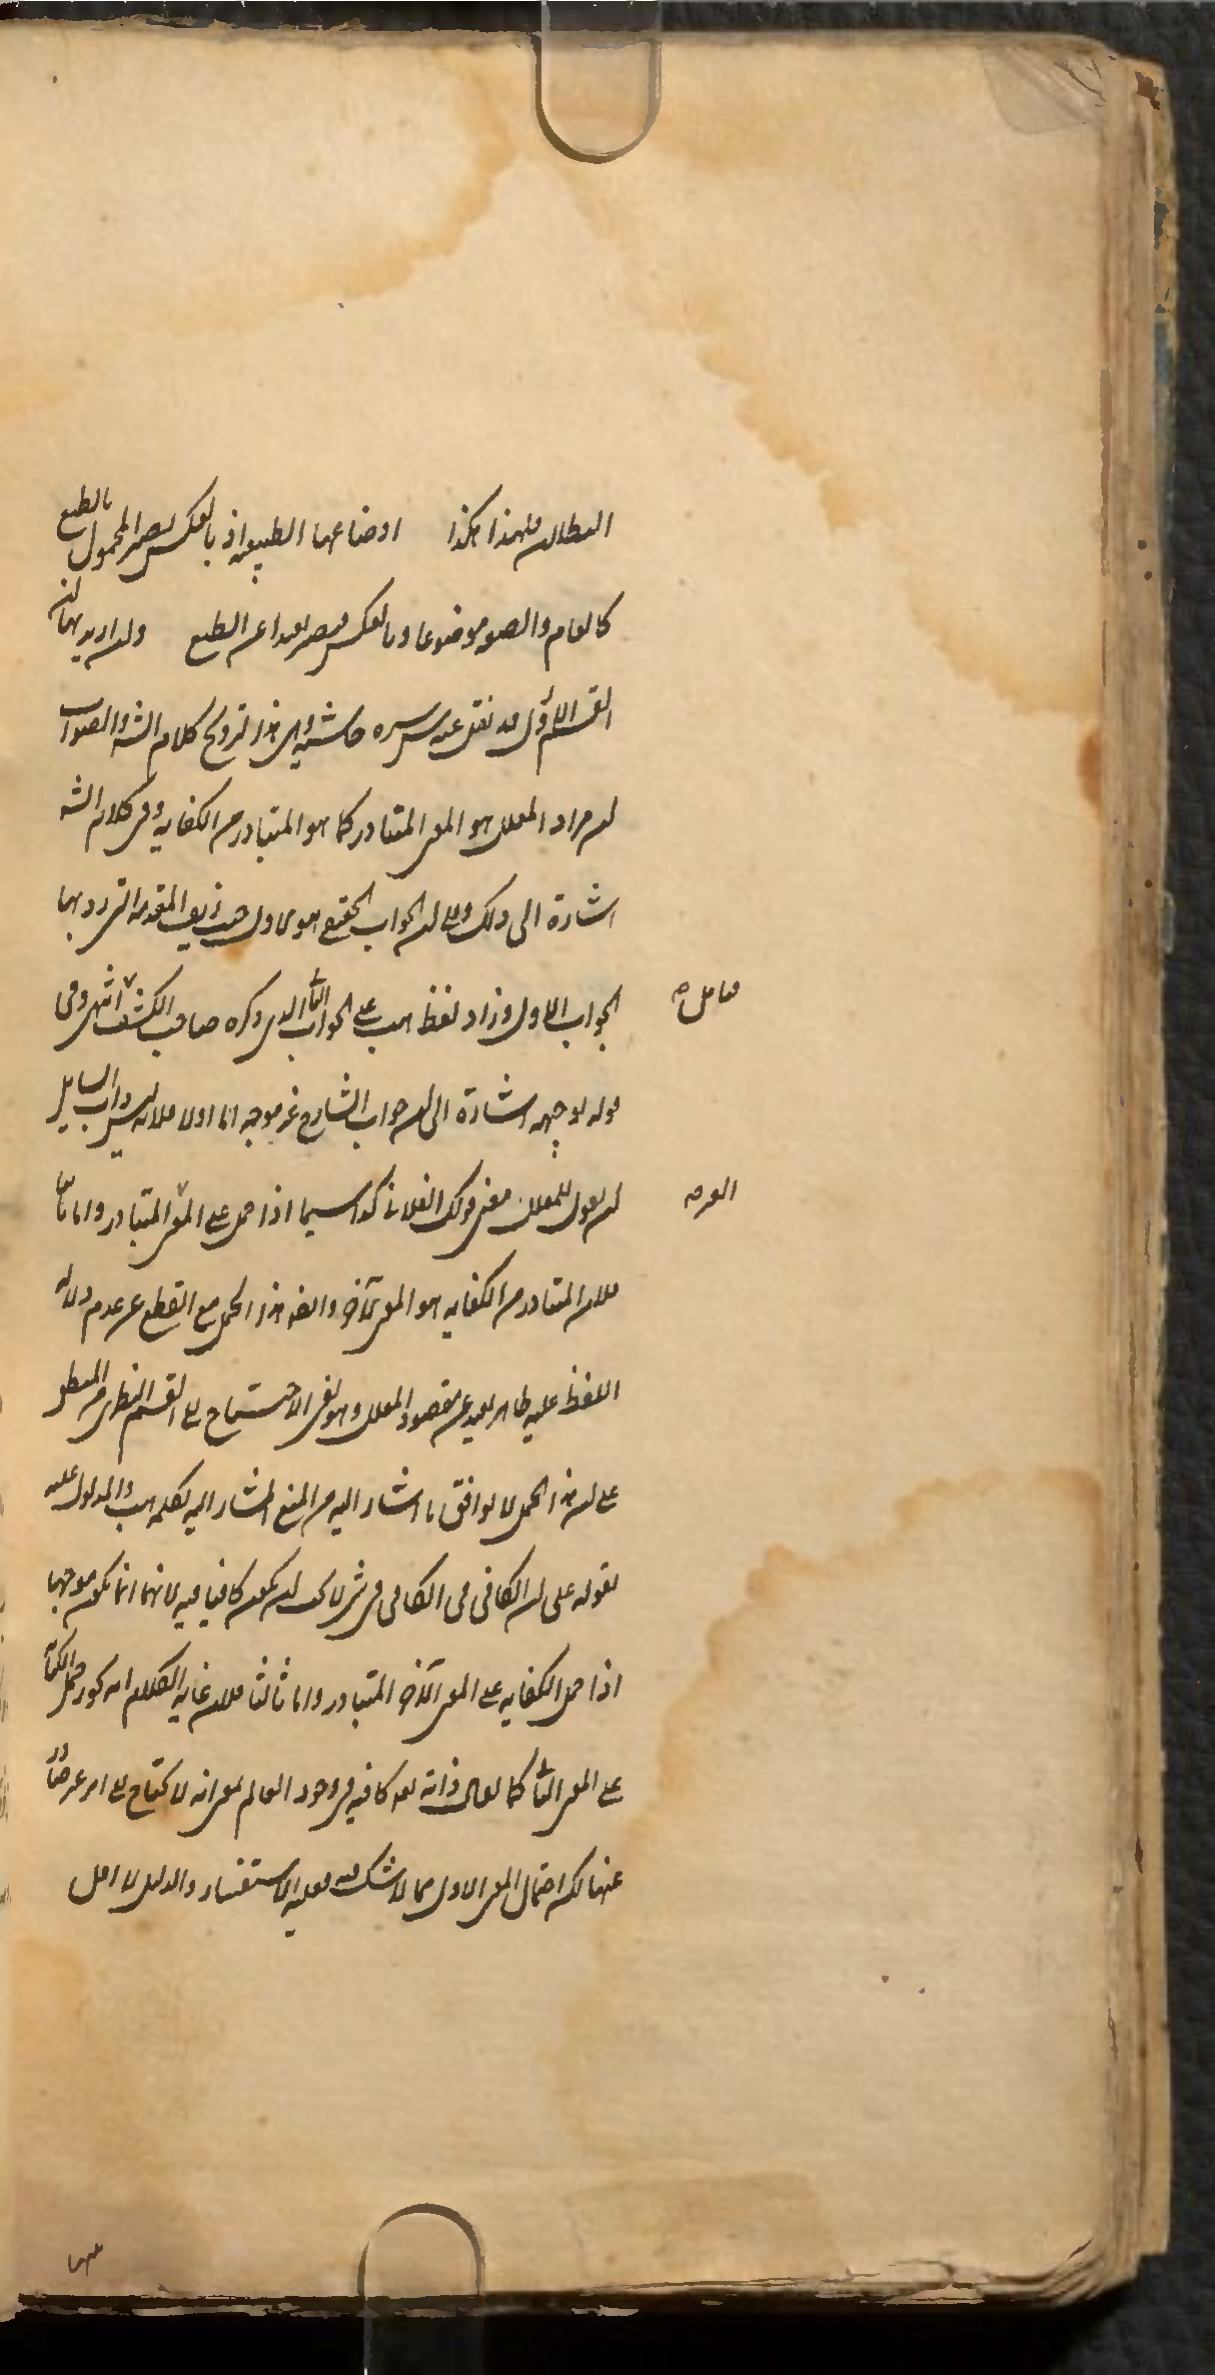 البطلان فلهذا هكذا اوضاعهما الطبيعه اذ بالعكس يصير المحمول بالطبع
كالعام والصو موضوعا وبالعكس فيصير بعيدا عن الطبع ولن اريد بهما ان
القسم الأول قد نقل عنه سره حاشيه وهى هذا ترويج كلام الشه والصواب
لن مراد المعلل هو المعنى المتبادر كما هو المتبادر من الكفايه وفى كلام الشه
اشارة الى ذلك والى لن الجواب الحقيقى هو الاول حيث زيف المقدمه التى رد بها
الجواب الاول وزاد لفظ هب على الجواب الثا الذى ذكره صاحب الكشف انتهى وفى
قوله توجيهه اشارة الى لن جواب الشارح غير موجه اما اولا فلانه ليس داب السايل
لن يقول للمعلل معنى قولك الفلانى كذا سيما اذا حمل على المعنى الغير المتبادر واما ثانيا
فلان المتبادر من الكفايه هو المعنى الآخر وايضه هذا الحمل مع القطع عن عدم دلالة
اللفظ عليه ظاهر بعيد عن مقصود المعلل وهو نفى الاحتياج الى القسم النظرى من المنطق
على لن هذا الحمل لا يوافق ما اشار اليه من المنع المشار اليه بكلمه هب والمدلول عليه
بقوله على لن الكافى فى الكافى فى شى لا لن يكون كافيا فيه لانهما انما يكون موجها
اذا حمل الكفايه على المعنى الآخر المتبادر واما ثالثا فلان غايه الكلام انه يجوز حمل الكفاية
على المعنى الثا كما يقال ذاته تعه كافيه فى وجود العالم بمعنى انه لا يحتاج الى امر غير صادر
عنها لكن احتمال المعنى الاول مما لا شك فيه فعليه الاستفسار والدليل لا اقل
فتامل صه
الغير صه
عنها